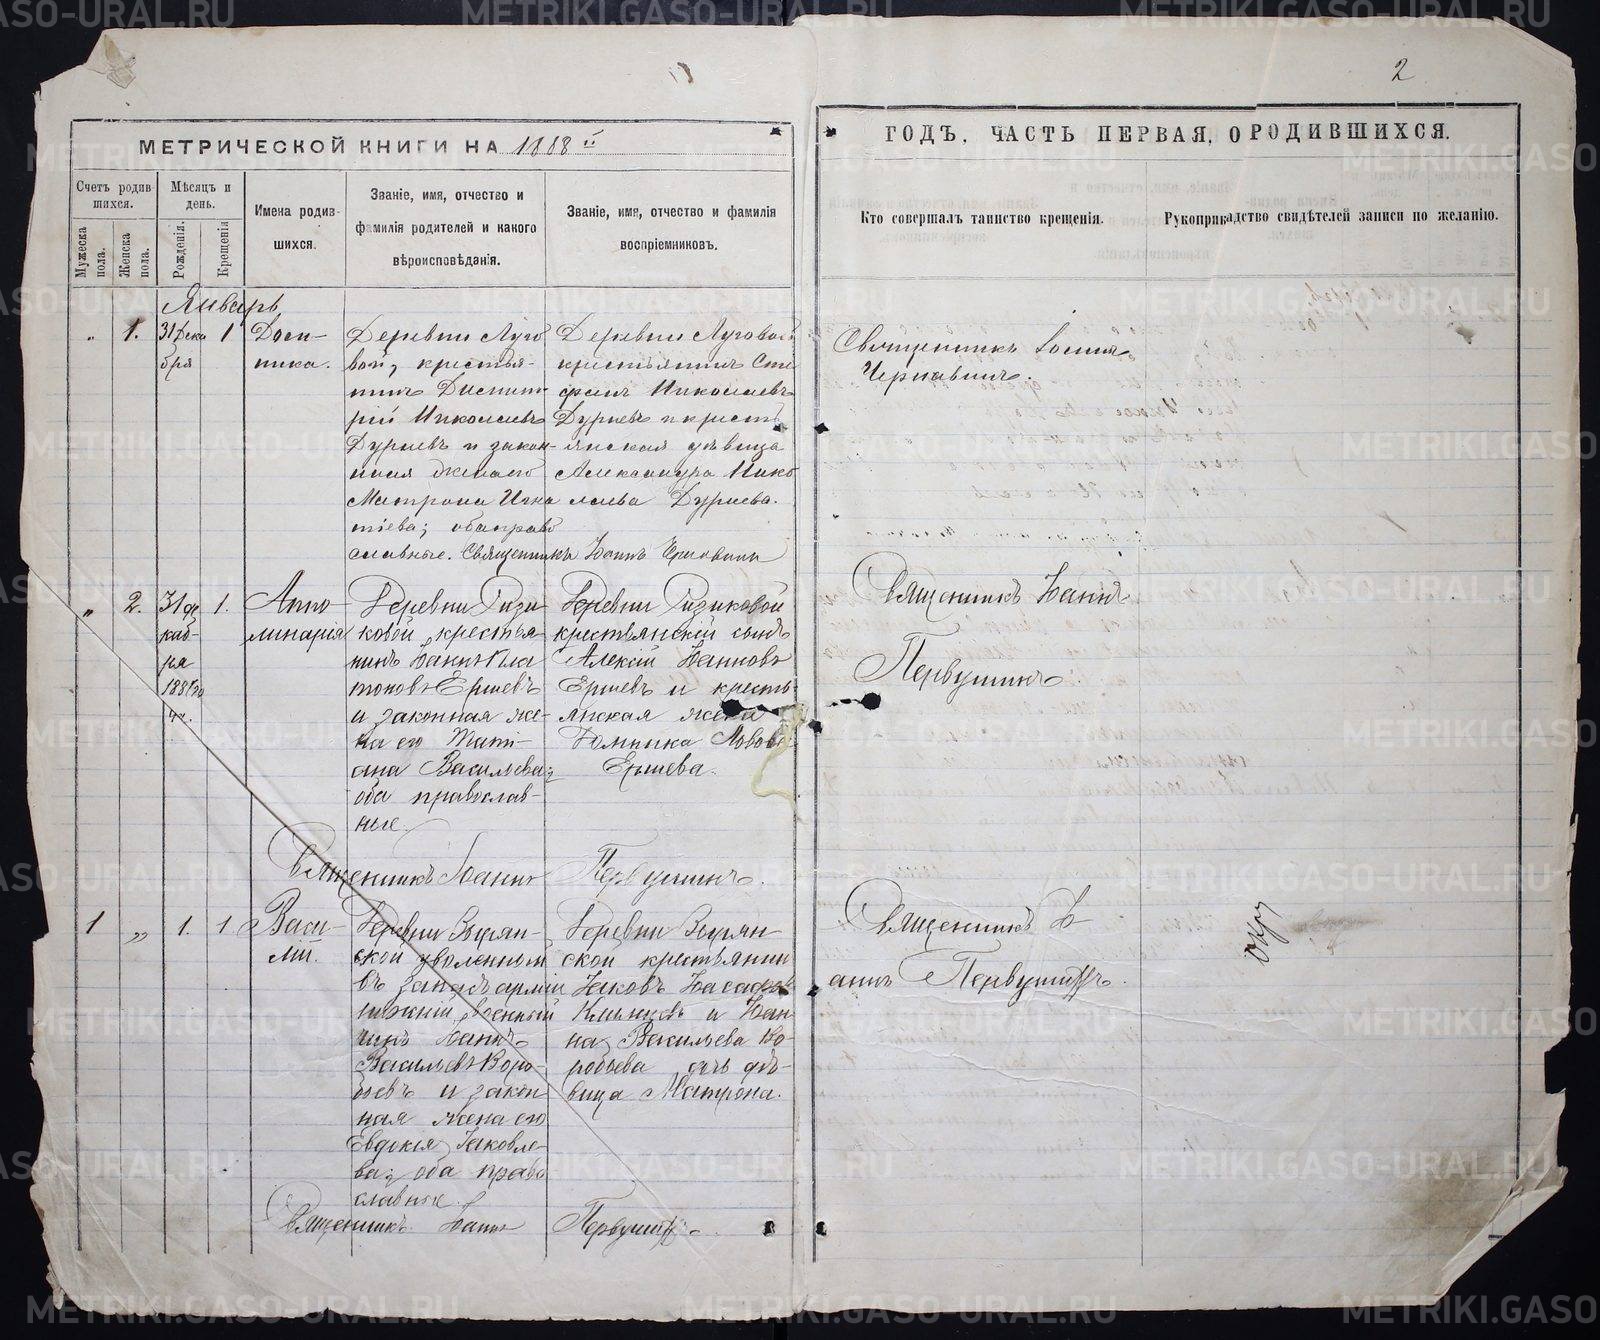 2
МЕТРИЧЕСКОЙ КНИГИ НА 1888 й
ГОДЪ, ЧАСТЬ ПЕРВАЯ, О РОДИВШИХСЯ.
Счетъ родив-
шихся.
Мужеска
пола.
Женска
пола.
Мѣсяцъ и
день.
Рожденія.
Крещенія
Имена родив-
шихся.
Званіе, имя, отчество и
фамилія родителей и какого
вѣроисповѣданія.
Званіе, имя, отчество и фамилія
воспріемниковъ.
Кто совершалъ таинство крещенія.
Рукоприкладство свидѣтелей записи по желанію.
Январь
„ 1.
31 Дека
бря
1
Домн-
ника.
Деревни Луго
вой, крестья-
нинъ Димит-
рій Николаевъ
Дурневъ и закон-
ная жена его
Матрона Игна
тіева; оба право
славные. Священникъ
Деревни Луговой
крестьянинъ Сте
фанъ Николаевъ
Дурневъ и кресть
янская дѣвица
Александра Нико
лаева Дурнева.
Священникъ Іоаннъ
Чернавинъ.
„ 2.
31 де
каб-
ря
1887 го
1.
Аппо-
линарія
Деревни Гизи-
ковой крестья-
нинъ Іоаннъ Пла
тоновъ Ершевъ
и законная же-
на его Тати-
ана Васильева;
оба православ-
ные.
Деревни Гизиковой
крестьянскій сынъ
Алексій Іоанновъ
Ершевъ и кресть
янская жена
Домника
Ершева.
Священникъ Іоаннъ
Первушинъ.
Священникъ Іоаннъ Первушинъ.
1 „ 1. 1
Васи-
лій.
Деревни Зырян-
ской уволенный
въ запасъ арміи
нижній военный
чинъ Іоаннъ
Васильевъ Воро-
бьевъ и закон
ная жена его
Евдокія Іаковле-
ва; оба право
славные.
Деревни Зырян-
ской крестьянин
Іаковъ
и Іоан
на Васильева Во-
робьева дочь дѣ-
вица Матрона.
Священникъ Іо-
аннъ Первушинъ.
Священникъ Іоаннъ Первушинъ.
METRIKI.GASO-URAL.RU